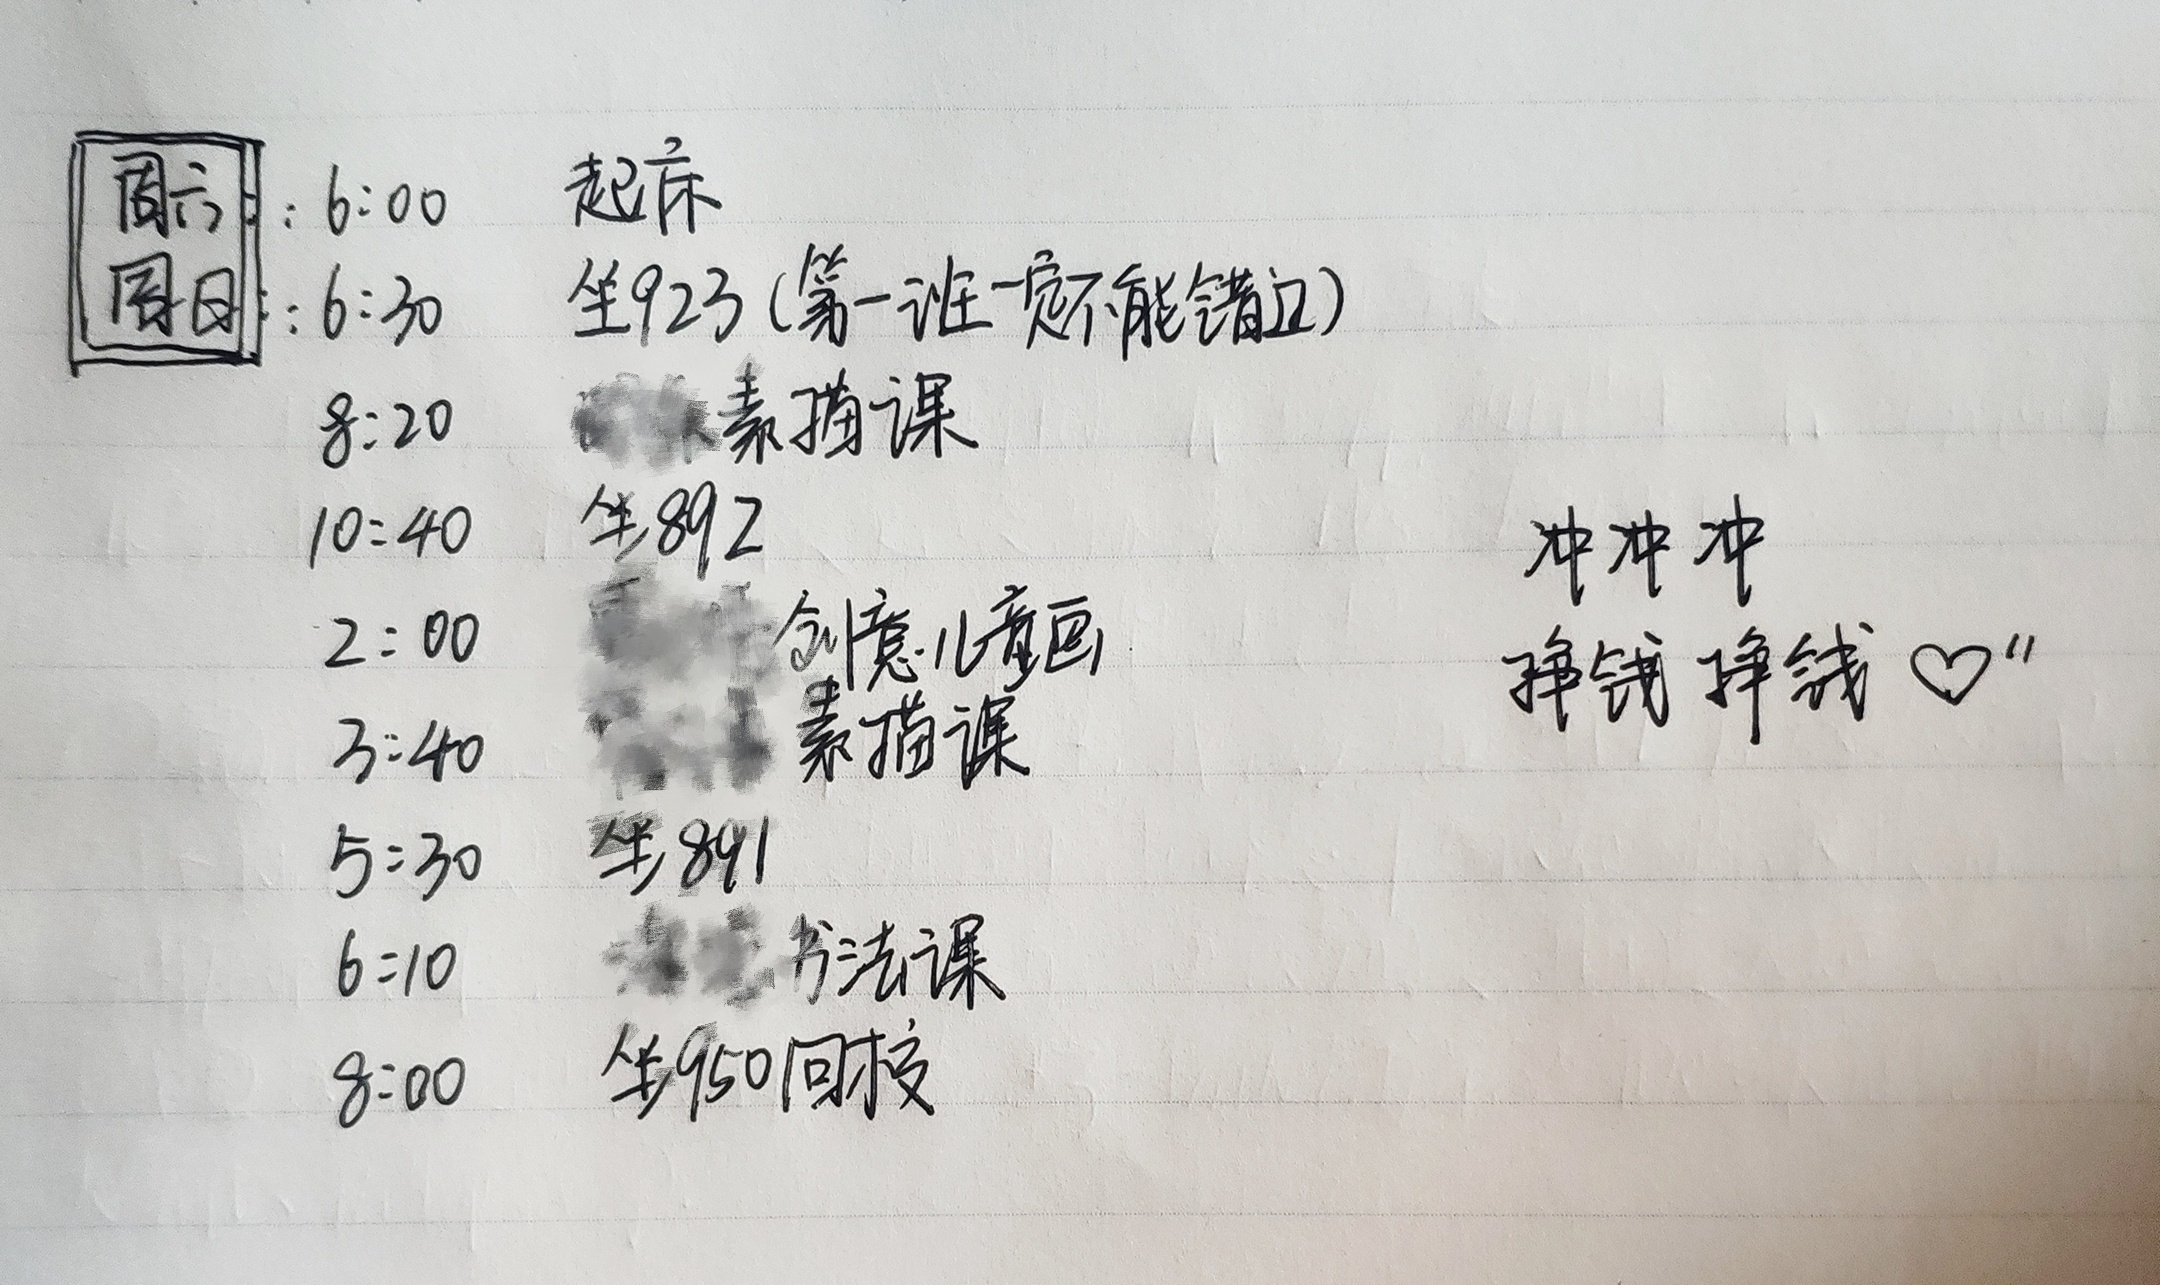 周六 : 6:00 起床
周日 : 6:30 坐923(第一班一定不能错过)
8:20 素描课
10:40 坐892
2:00 创意儿童画
3:40 素描课
5:30 坐891
6:10 书法课
8:00 坐950回校
冲冲冲
挣钱挣钱♡"